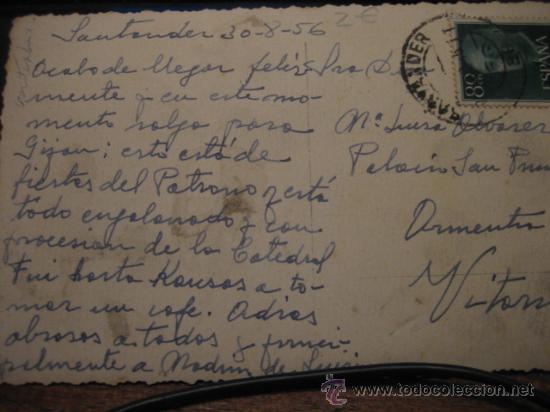 Santander 30-8-56
2€
Acabo de llegar feliz-
mente y en este mo-
mento salgo para
Gijon; esto está de
fiestas del Patrono y está
todo engalanado y con
procesion de la Catedral
Fui hasta Kansas a to-
mar un cafe. Adios
abrazos a todos y princi-
palmente a
Sra D.
Mª Luisa Alvarez
Palacio San Pru
Armentia
Vitoria
SANTANDER
80
ESPAÑA
todocoleccion
http://www.todocoleccion.net